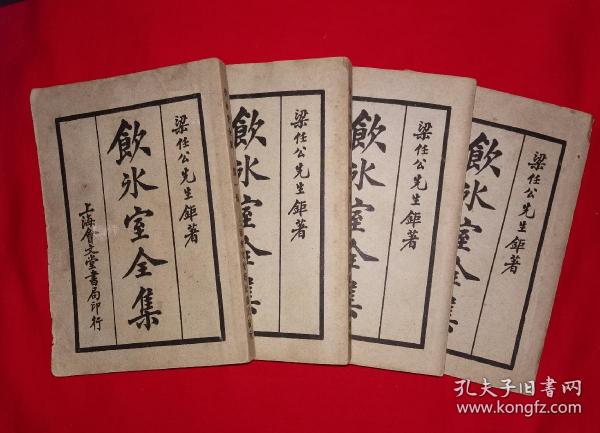 梁任公先生鉅著
飲冰室全集
上海會文堂書局印行
梁任公先生鉅著
飲冰室全集
梁任公先生鉅著
飲冰室全集
梁任公先生鉅著
飲冰室全集
孔夫子旧书网
www.kongfz.com